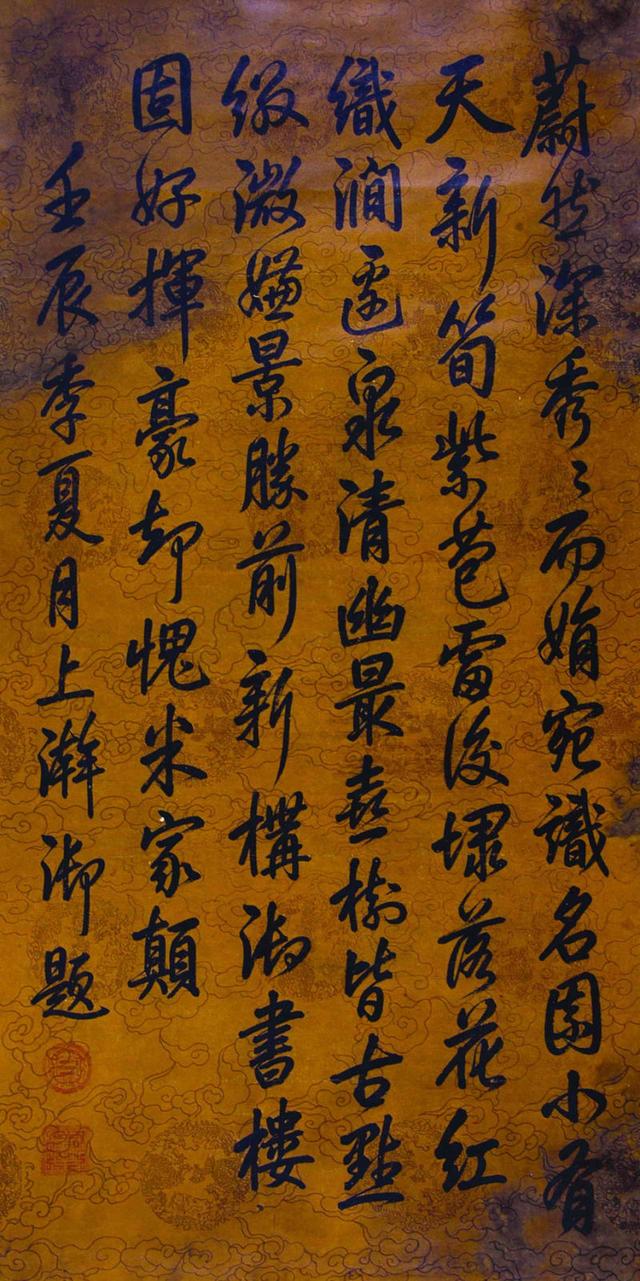 蔚然深秀秀而娟宛識名園小有
天新筍紫苞雷後埭落花紅
織澗邊泉清幽最喜樹皆古點
綴微嫌景勝前新構御書樓
固好揮豪却愧米家顛
壬辰季夏月上澣御題